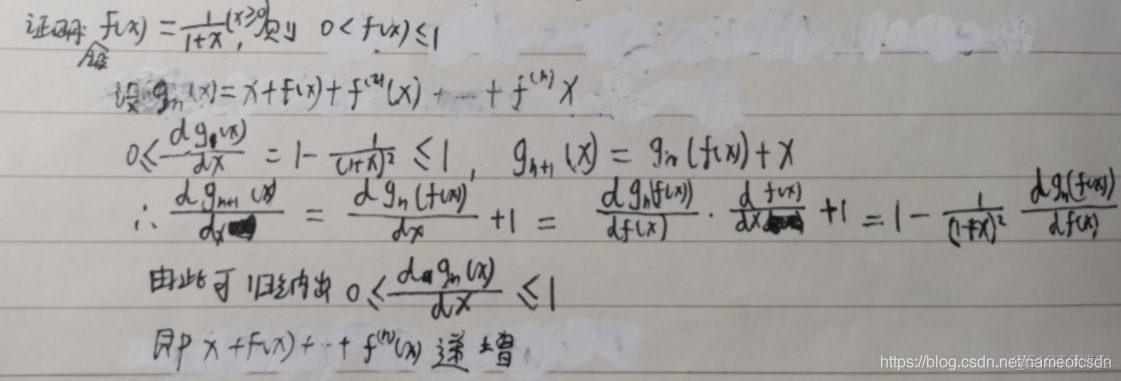 证明: f(x) = 1/(1+x) (x≥0), 则 0 < f(x) ≤ 1
设 gₙ(x) = x + f(x) + f⁽²⁾(x) + … + f⁽ⁿ⁾x
0 ≤ dg₁(x)/dx = 1 - 1/(1+x)² ≤ 1, gₙ₊₁(x) = gₙ(f(x)) + x
∴ dgₙ₊₁(x)/dx = dgₙ(f(x))/dx + 1 = dgₙ(f(x))/df(x) · df(x)/dx + 1 = 1 - 1/(1+x)² dgₙ(f(x))/df(x)
由此可归纳出 0 ≤ dgₙ(x)/dx ≤ 1
即 x + f(x) + … + f⁽ⁿ⁾(x) 递增
https://blog.csdn.net/nameofcsdn